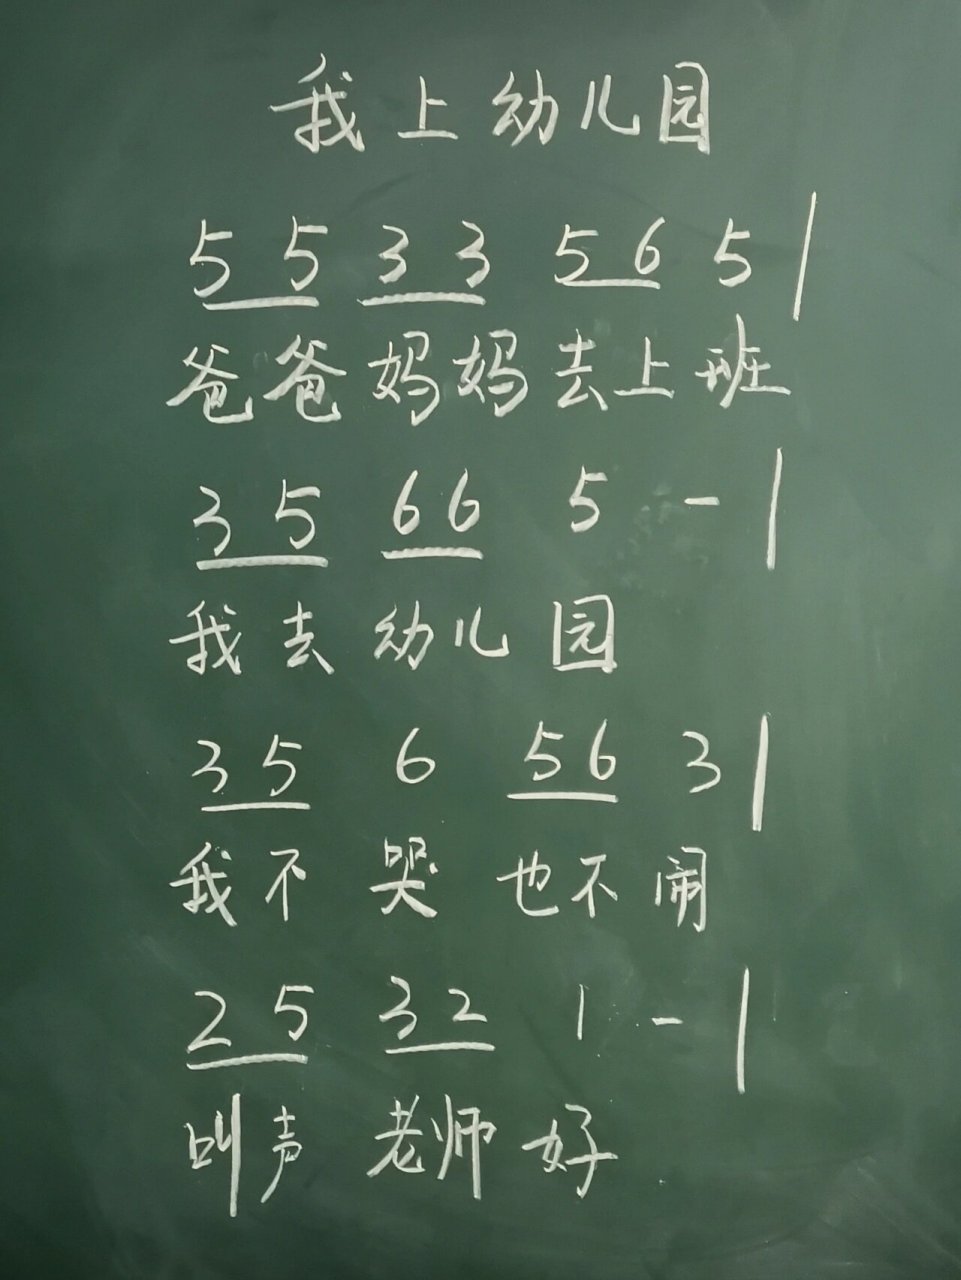 我上幼儿园
5 5 3 3 5 6 5 |
爸爸妈妈去上班
3 5 6 6 5 - |
我去幼儿园
3 5 6 5 6 3 |
我不哭也不闹
2 5 3 2 1 - |
叫声老师好